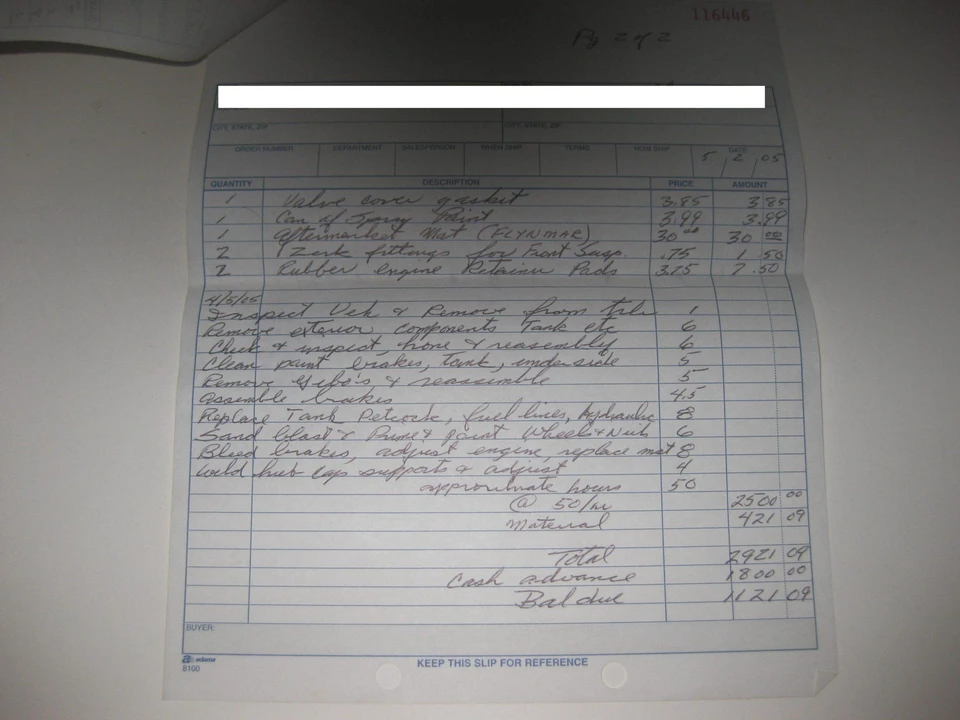 116446
Pg 2 of 2
CITY, STATE, ZIP CITY, STATE, ZIP
ORDER NUMBER DEPARTMENT SALESPERSON WHEN SHIP TERMS HOW SHIP DATE
5 2 05
QUANTITY DESCRIPTION PRICE AMOUNT
1 Valve cover gasket 3.85 3.85
1 Can of Spray Paint 3.99 3.99
1 Aftermarket Mat (FLYNMAR) 30 00 30 00
2 Zerk fittings for Front Susp. .75 1.50
2 Rubber engine Retainer Pads 3.75 7.50
4/5/05
Inspect Veh & Remove from trlr 1
Remove exterior components Tank etc 6
Check & inspect, hone & reassembly 6
Clean paint brakes, tank, underside 5
Remove & reassemble 5
Assemble brakes 4.5
Replace Tank Petcock, fuel lines, hydraulic 8
Sand blast & Prime & paint Wheels & Nuts 6
Bleed brakes, adjust engine, replace mat 8
Weld hub cap supports & adjust 4
approximate hours 50
@ 50/hr 2500 00
Material 421 09
Total 2921 09
Cash advance 1800 00
Bal due 1121 09
BUYER:
adams
8100
KEEP THIS SLIP FOR REFERENCE